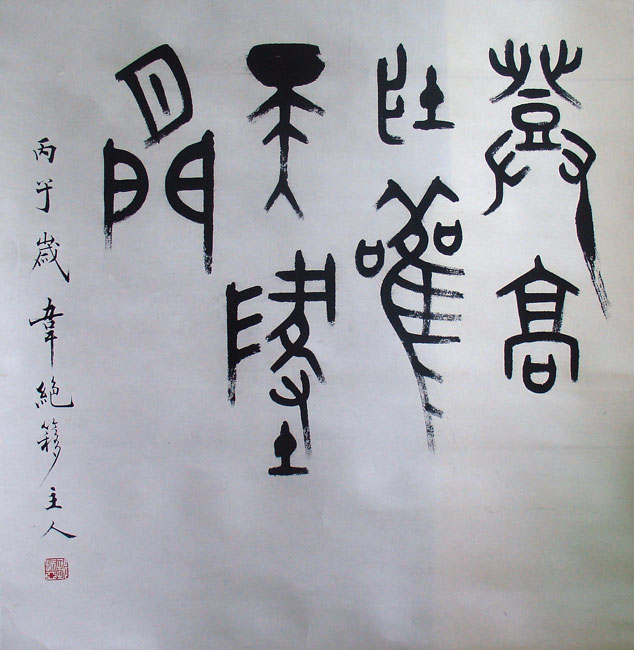 登高
壯雚
天墬
閒
丙子歲韋絕簃主人